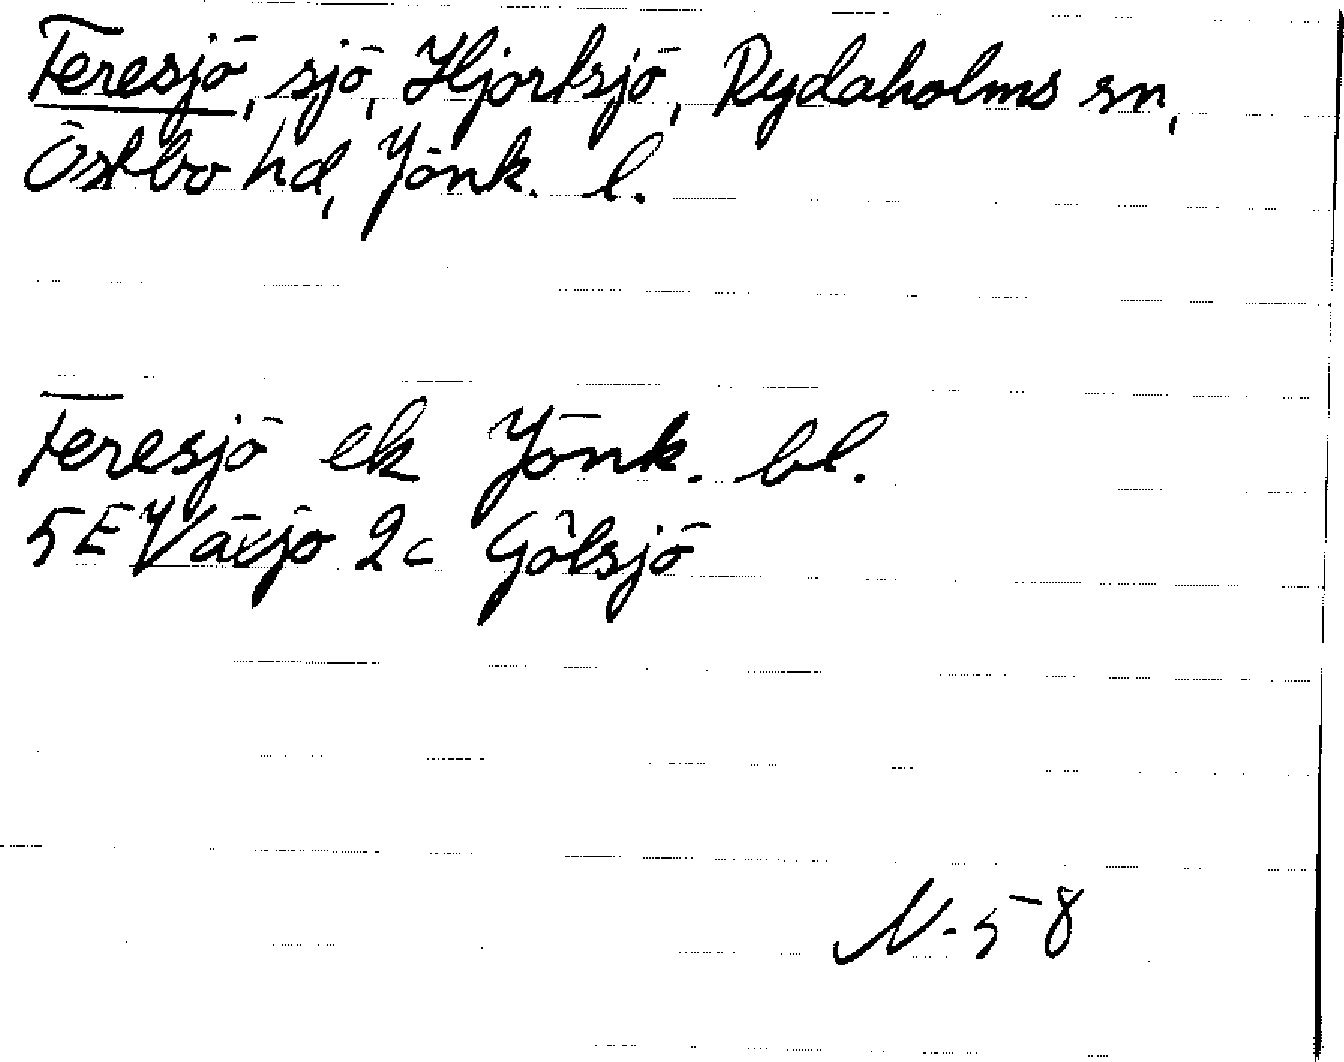 Feresjö, sjö, Hjortsjö, Rydaholms sn,
Östbo hd, Jönk. l.
Feresjö ek Jönk. bl.
5E Växjö 2c Gölsjö
N-58